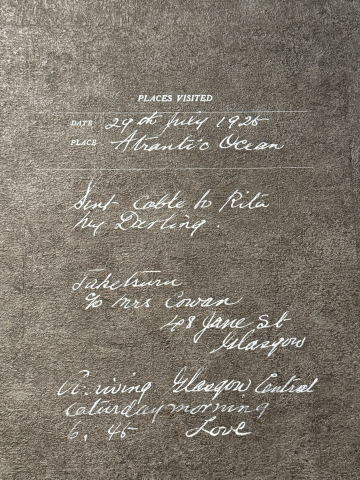 PLACES VISITED
DATE 29th July 1925
PLACE Atlantic Ocean
Sent cable to Rita
my Darling.
Taketsuru
c/o Mrs Cowan
48 Jane St
Glasgow
Arriving Glasgow Central
Saturday morning
6.45 Love